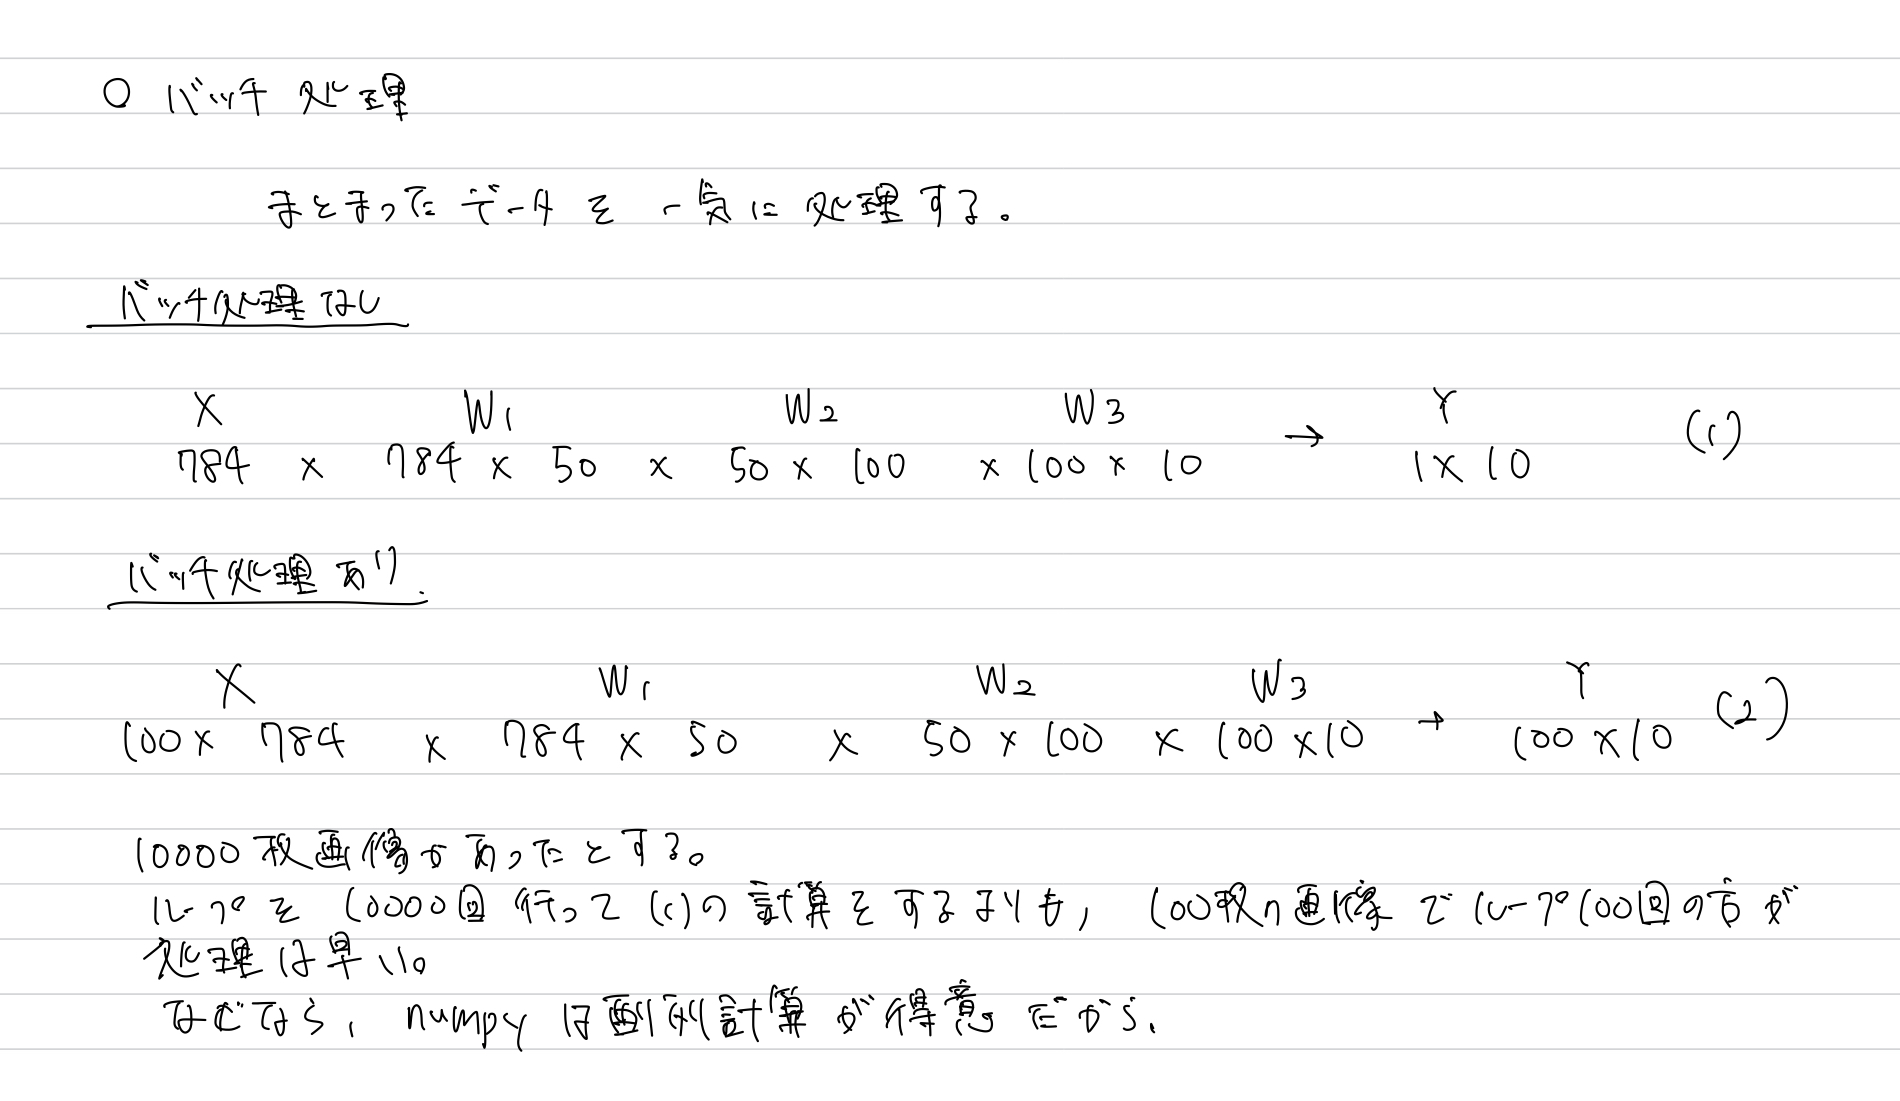 ○ バッチ処理
まとまったデータを一気に処理する。
バッチ処理なし
X W1 W2 W3 Y
784 × 784 × 50 × 50 × 100 × 100 × 10 → 1 × 10 (1)
バッチ処理あり.
X W1 W2 W3 Y
100 × 784 × 784 × 50 × 50 × 100 × 100 × 10 → 100 × 10 (2)
10000枚画像があったとする。
ループを10000回行って(1)の計算をするよりも, 100枚の画像でループ100回の方が
処理は早い。
なぜなら, numpyは配列計算が得意だから.